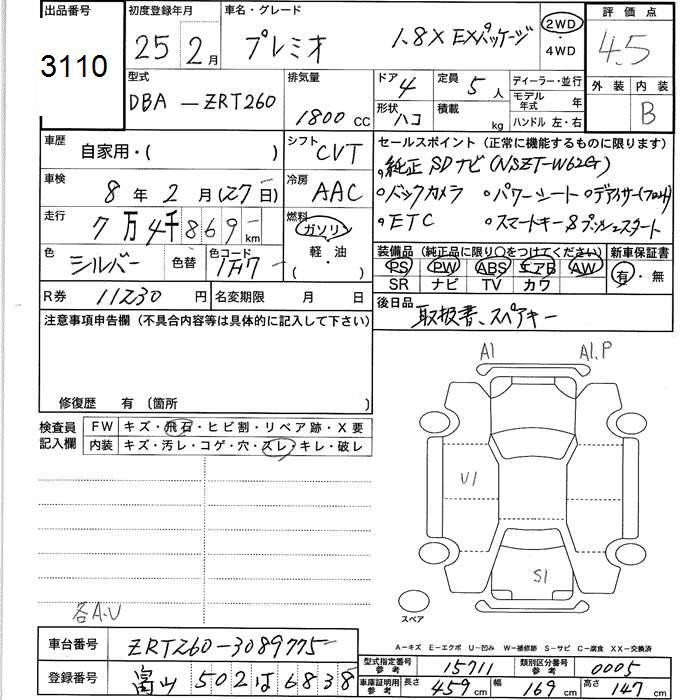 出品番号 初度登録年月 車名・グレード 評価点
3110 25 2月 プレミオ 1.8X EXパッケージ 2WD・4WD 4.5
型式 排気量 ドア 4 定員 5人 ディーラー・並行 外装 内装
DBA-ZRT260 1800cc 形状 ハコ 積載 kg モデル年式 年 B
ハンドル 左・右
車歴 自家用・( ) シフト CVT セールスポイント(正常に機能するものに限ります)
・純正SDナビ(NSZT-W62G)
車検 8年2月(27日) 冷房 AAC ・バックカメラ ・パワーシート ・デアイサー(フロント)
走行 7万4千869km 燃料 ガソリン・軽・油( ) ・ETC ・スマートキー&プッシュスタート
色 シルバー 色替 色コード 1F7 装備品(純正品に限り○をつけてください) 新車保証書
PS PW ABS エアB AW 有・無
SR ナビ TV カワ
R券 11230円 名変期限 月 日 後日品
取扱書、スペアキー
注意事項申告欄(不具合内容等は具体的に記入して下さい)
A1 A1.P
修復歴 有(箇所 )
検査員記入欄 FW キズ・飛石・ヒビ割・リペア跡・X要
内装 キズ・汚レ・コゲ・穴・スレ・キレ・破レ
U1
S1
各A.U
スペア
A-キズ E-エクボ U-凹み W-補修跡 S-サビ C-腐食 XX-交換済
車台番号 ZRT260-3089775
型式指定番号 参考 15711 類別区分番号 参考 0005
登録番号 富山 502 は 6838
車庫証明用 参考 長さ 459cm 幅 169cm 高さ 147cm